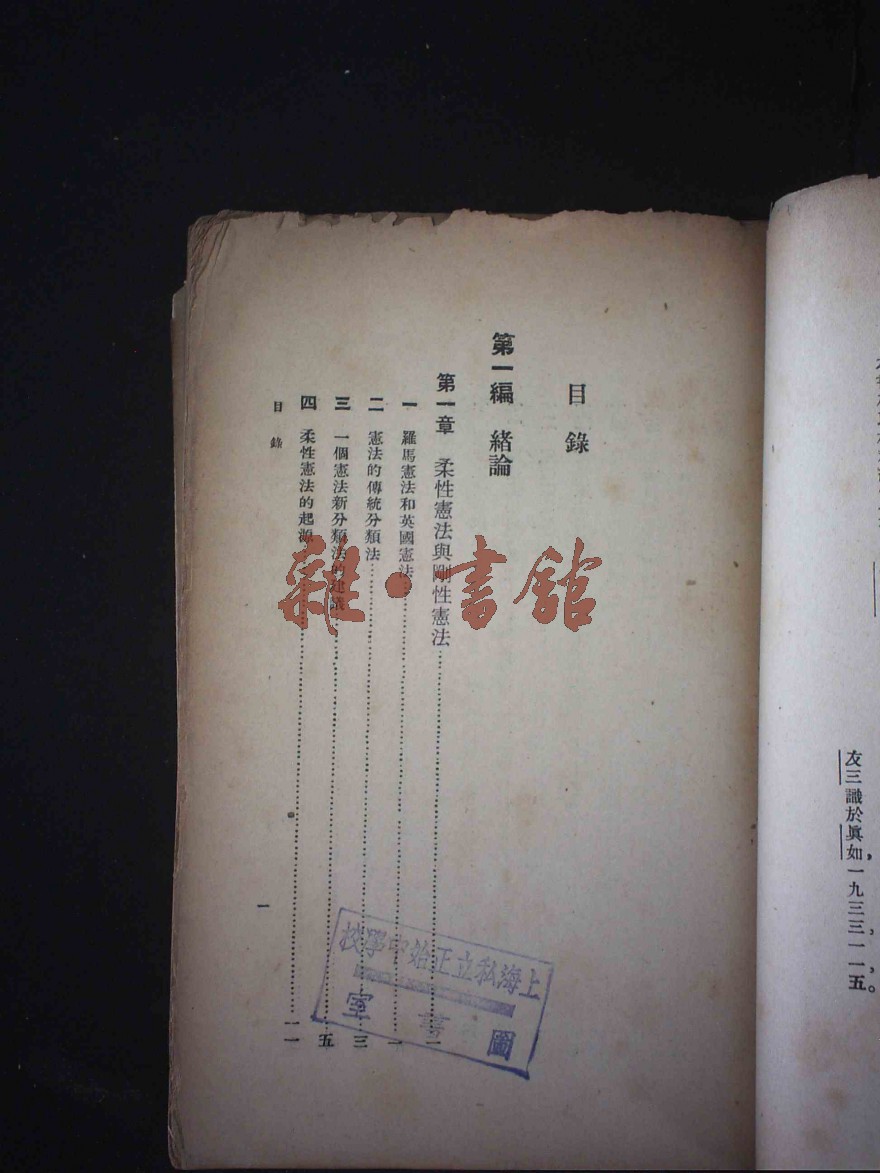 友三識於眞如一九三三，一，一五。
目錄
第一編　緒論
第一章　柔性憲法與剛性憲法……一
一　羅馬憲法和英國憲法……一
二　憲法的傳統分類法……三
三　一個憲法新分類法的建議……五
四　柔性憲法的起源……一一
目錄
一
上海私立正始中學校
圖書室
雜·書館